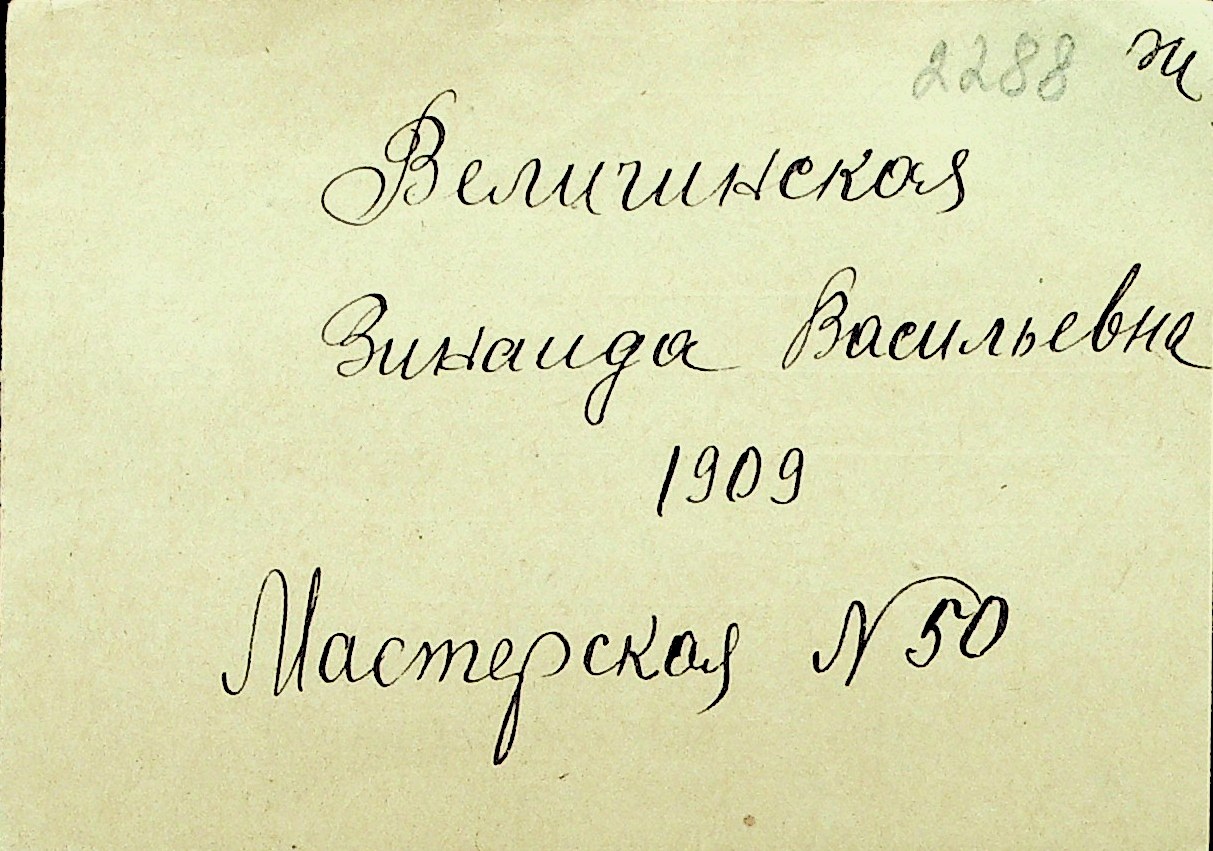 2288 ж
Величинская
Зинаида Васильевна
1909
Мастерская № 50